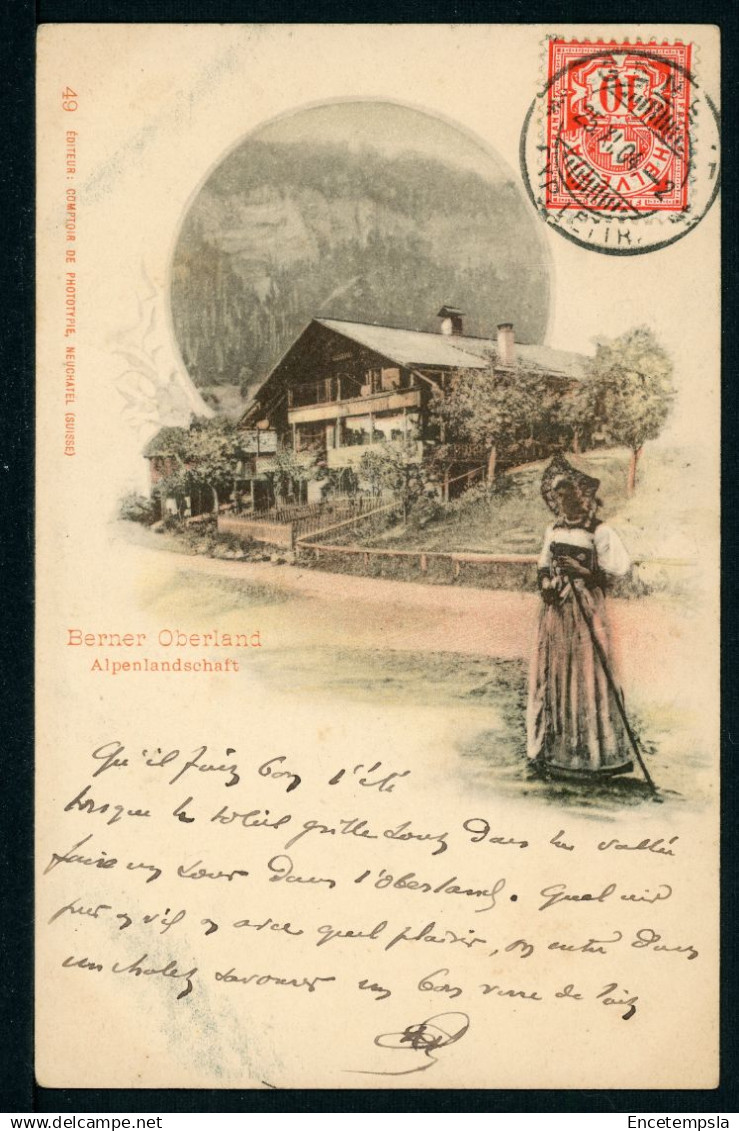 49 ÉDITEUR: COMPTOIR DE PHOTOTYPIE, NEUCHATEL (SUISSE)
10
HELVETIA
LETTR.
Berner Oberland
Alpenlandschaft
Qu'il fait bon l'été
lorsque le soleil grille tout dans la vallée
faire un tour dans l'Oberland. Quel air
pur il y a et avec quel plaisir, on entre dans
un chalet savourer un bon verre de lait
Encetempsla